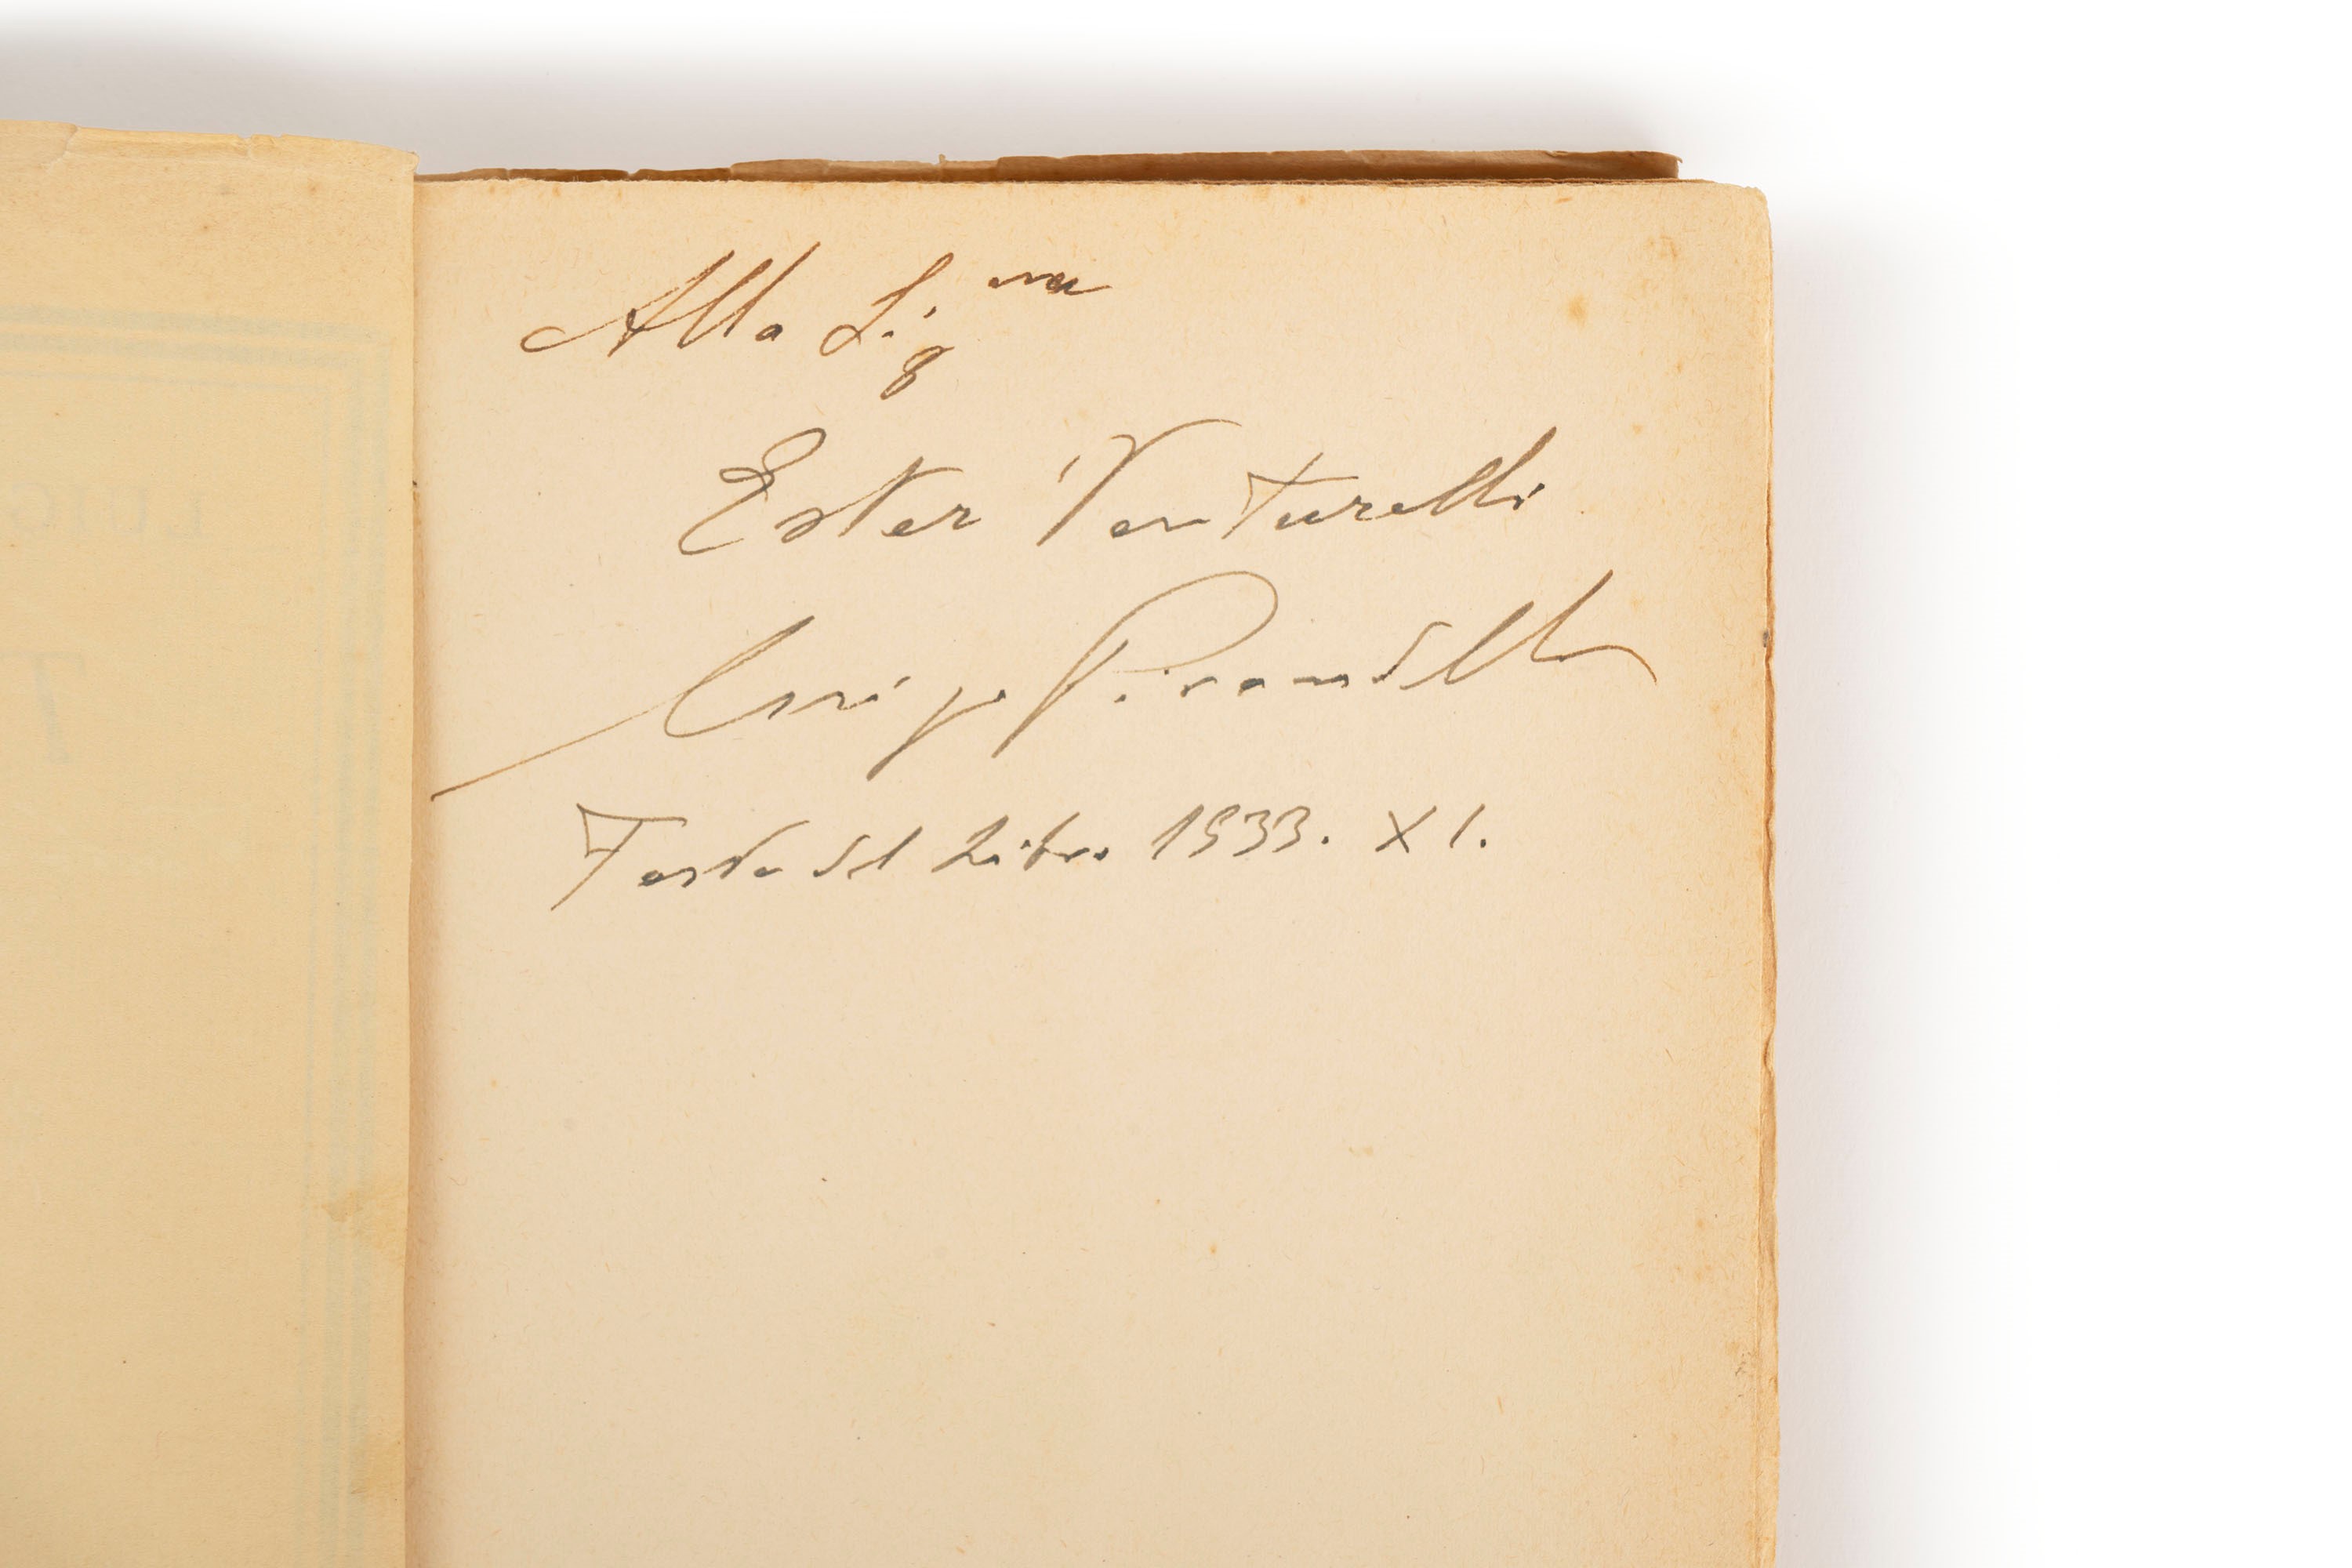 Alla Sig.na
Ester Venturelli
Luigi Pirandello
Festa del Libro 1933. XI.